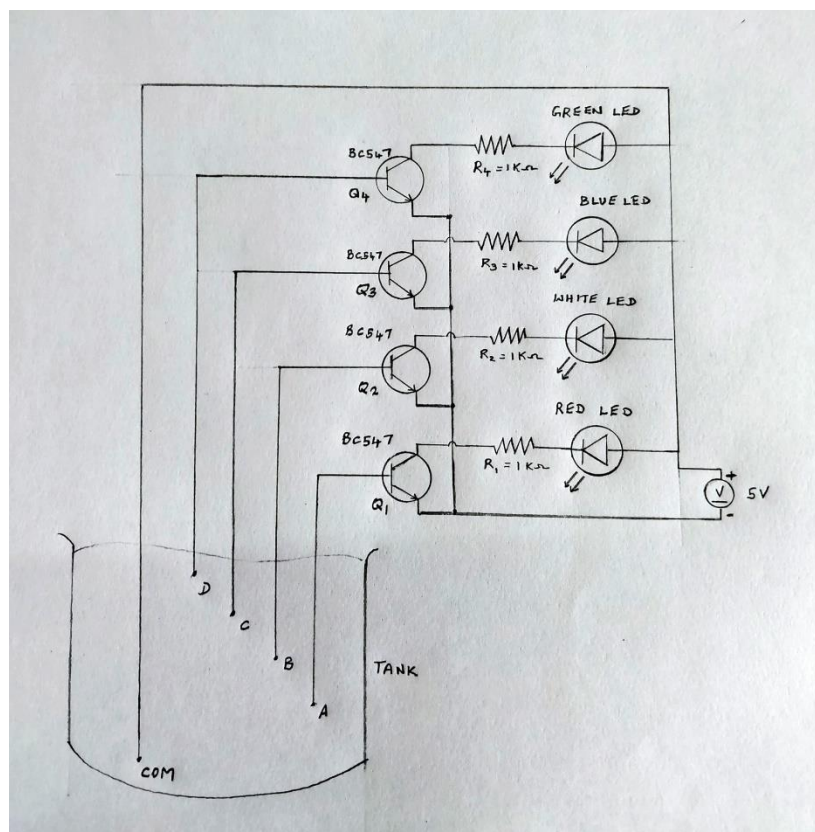 GREEN LED
BC547
Q4
R4 = 1KΩ
BLUE LED
BC547
Q3
R3 = 1KΩ
WHITE LED
BC547
Q2
R2 = 1KΩ
RED LED
BC547
Q1
R1 = 1KΩ
+
V 5V
-
D
C
B
TANK
A
COM